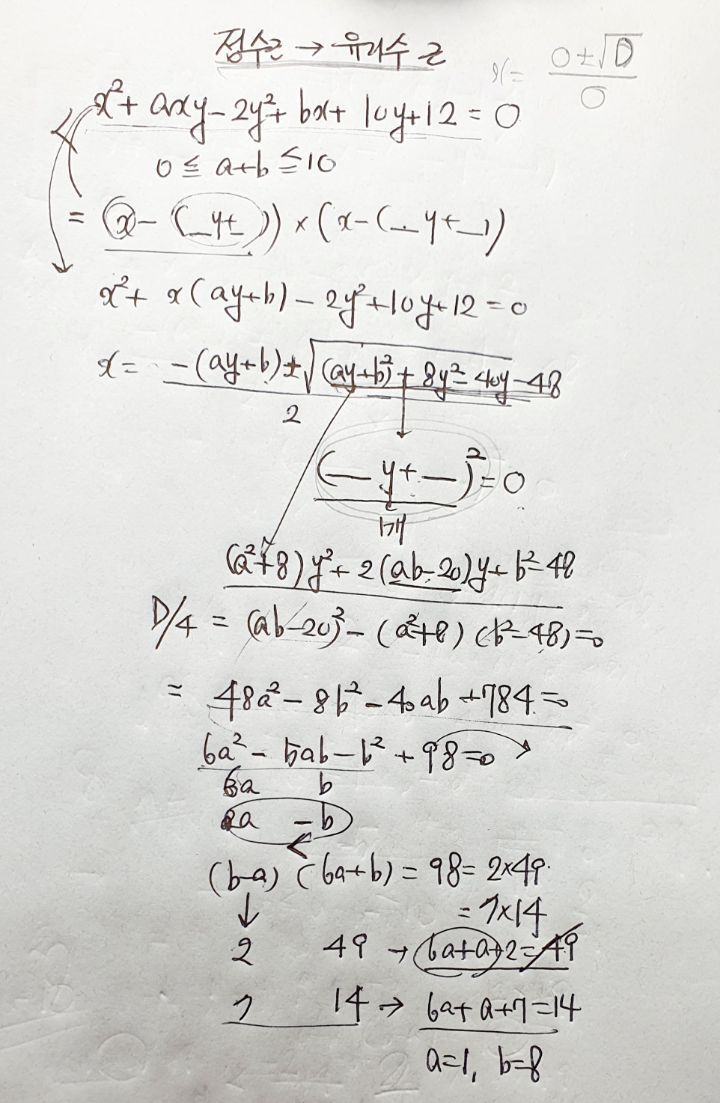 정수근 → 유리수 근
x = (0±√D)/0
x²+ axy - 2y²+ bx + 10y+12 = 0
0 ≦ a+b ≦ 10
= (x - (_y+_)) × (x - (_y+_))
x²+ x(ay+b) - 2y²+10y+12 = 0
x = (-(ay+b) ± √((ay+b)² + 8y² - 40y - 48))/2
(_ y + _)² = 0
(a²+8)y² + 2(ab-20)y + b²-48
D/4 = (ab-20)² - (a²+8)(b²-48) = 0
= 48a² - 8b² - 40ab + 784 = 0
6a² - 5ab - b² + 98 = 0
6a b
a -b
(b-a)(6a+b) = 98 = 2×49
= 7×14
2 49 → 6a+a+2=49
7 14 → 6a+a+7=14
a=1, b=8